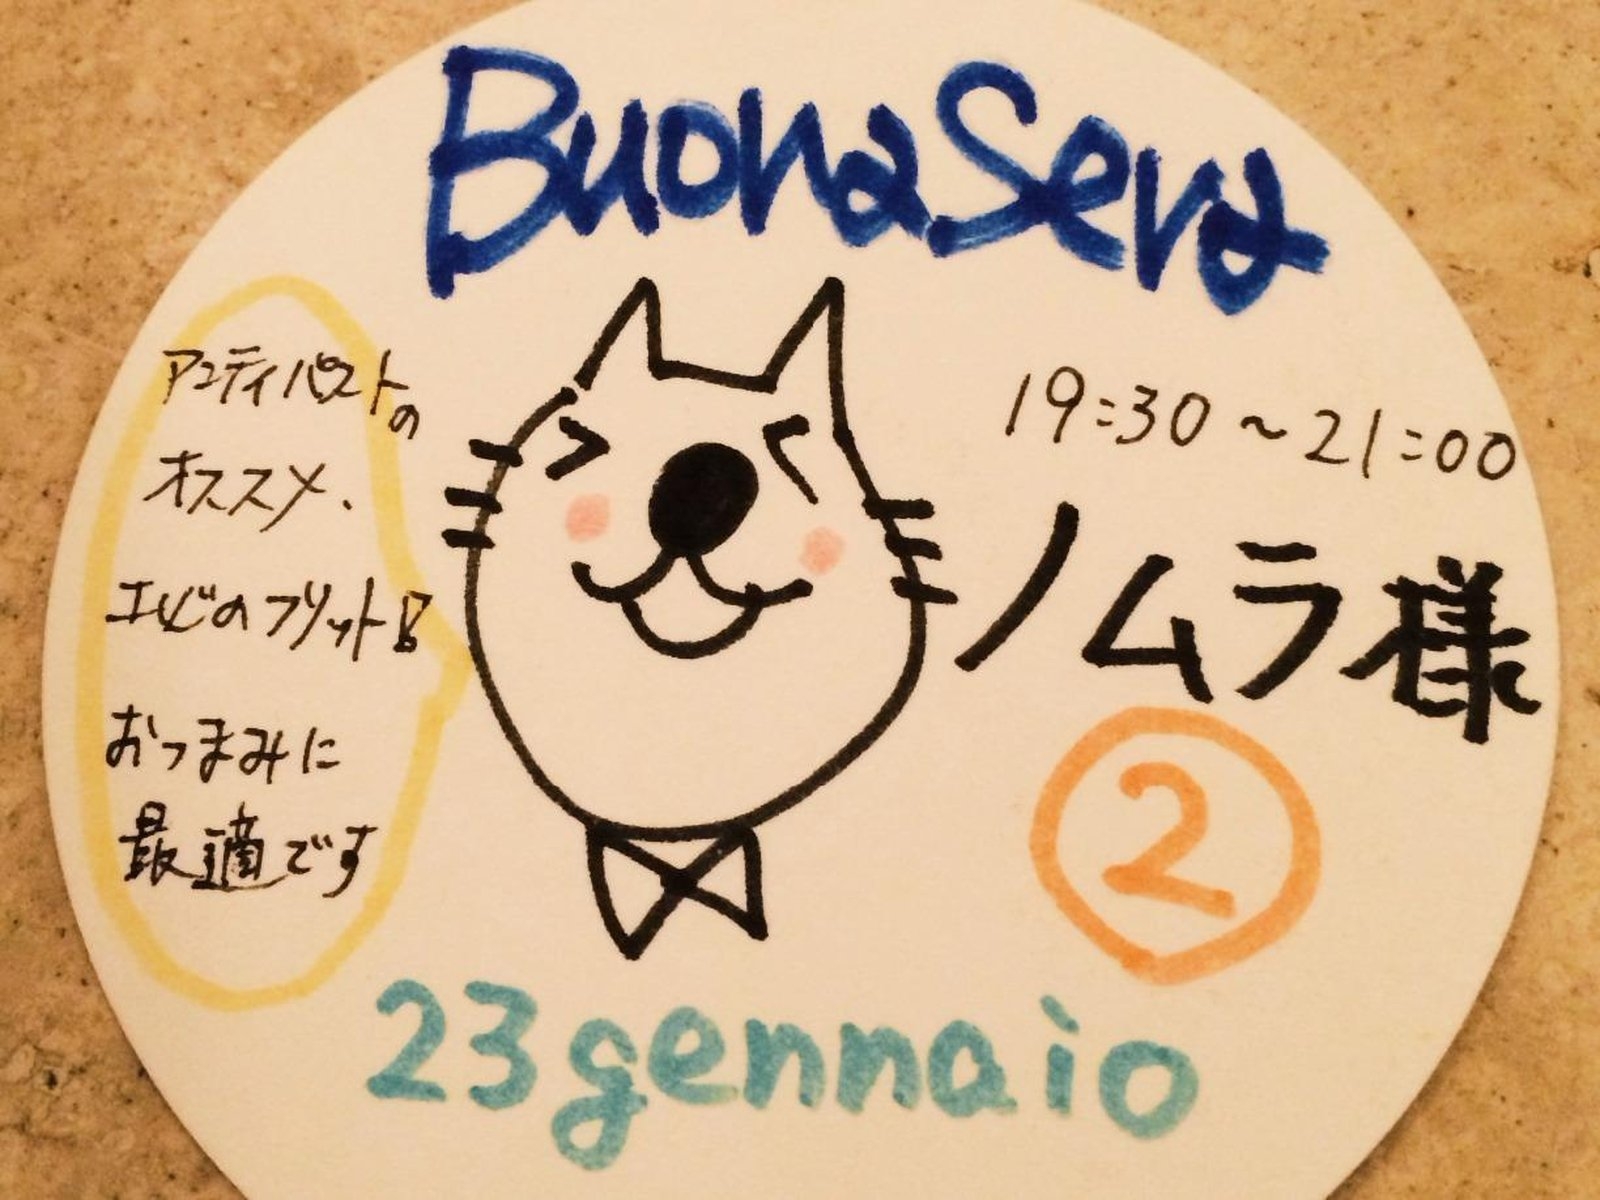 Buona Sera
アンティパストの
オススメ、
エビのフリット!
おつまみに
最適です
19:30~21:00
ノムラ様
2
23 gennaio